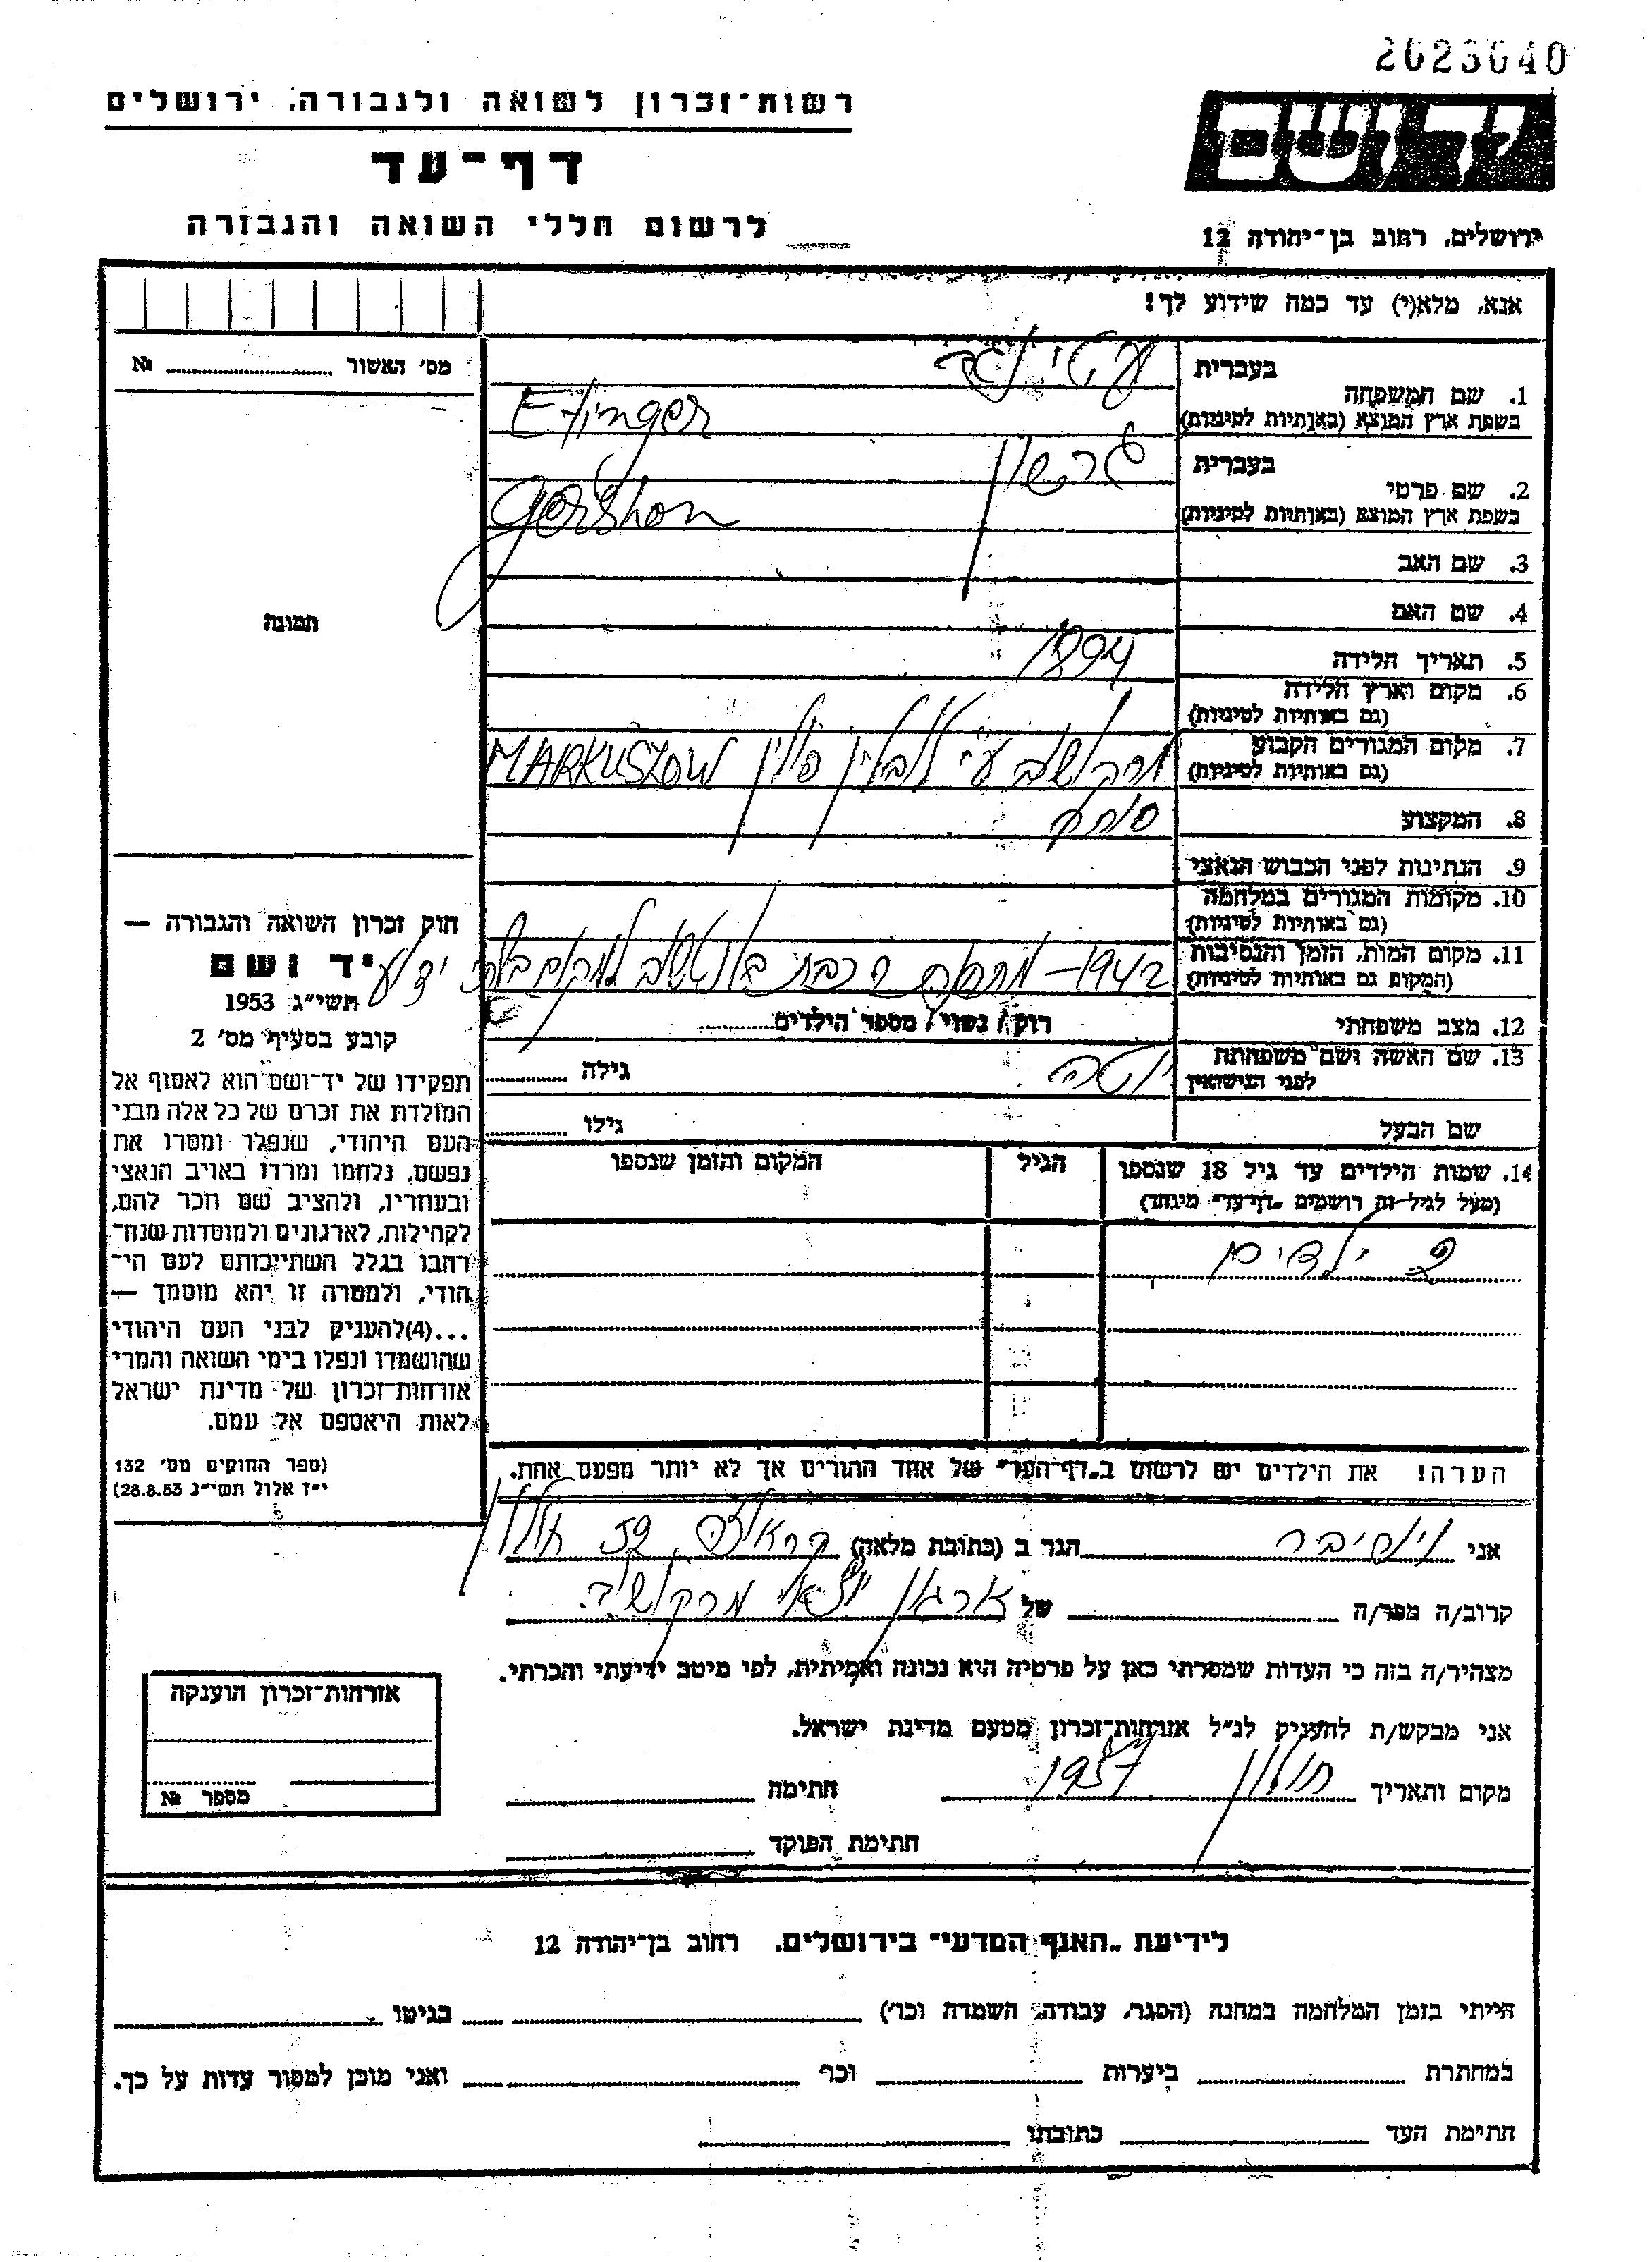 2623640
יד ושם
רשות-זכרון לשואה ולגבורה, ירושלים
דף-עד
לרשום חללי השואה והגבורה
ירושלים, רחוב בן-יהודה 12
אנא, מלא(י) עד כמה שידוע לך!
מס' האשור № 
1. שם המשפחה בעברית עטינגר
בשפת ארץ המוצא (באותיות לטיניות) Etinger
2. שם פרטי בעברית גרשון
בשפת ארץ המוצא (באותיות לטיניות) Gershon
3. שם האב
4. שם האם
תמונה
5. תאריך הלידה 1894
6. מקום וארץ הלידה
(גם באותיות לטיניות)
7. מקום המגורים הקבוע מרקושוב ע"י לובלין פולין MARKUSZOW
(גם באותיות לטיניות)
8. המקצוע סוחר
9. הנתינות לפני הכבוש הנאצי
10. מקומות המגורים במלחמה
(גם באותיות לטיניות)
11. מקום המות, הזמן והנסיבות 1942 – מתחנת הרכבת למקום בלתי ידוע
(המקום גם באותיות לטיניות)
12. מצב משפחתי רוק/ נשוי/ מספר הילדים
13. שם האשה ושם משפחתה יוטה גילה
לפני הנישואין
שם הבעל גילו
14. שמות הילדים עד גיל 18 שנספו הגיל המקום והזמן שנספו
(מעל לגיל זה רושמים "דף-עד" מיוחד)
2 ילדים
הערה! את הילדים יש לרשום ב"דף-העד" של אחד ההורים אך לא יותר מפעם אחת.
חוק זכרון השואה והגבורה —
יד ושם
תשי"ג 1953
קובע בסעיף מס' 2
תפקידו של יד-ושם הוא לאסוף אל
המולדת את זכרם של כל אלה מבני
העם היהודי, שנפלו ומסרו את
נפשם, נלחמו ומרדו באויב הנאצי
ובעוזריו, ולהציב שם וזכר להם,
לקהילות, לארגונים ולמוסדות שנח־
רבו בגלל השתייכותם לעם הי־
הודי, ולמטרה זו יהא מוסמך —
...(4)להעניק לבני העם היהודי
שהושמדו ונפלו בימי השואה והמרי
אזרחות-זכרון של מדינת ישראל
לאות היאספם אל עמם.
(ספר החוקים מס' 132
י"ז אלול תשי"ג 28.8.53)
אני הגר ב (כתובת מלאה) 52 חולון
קרוב/ה מכר/ה של ארגון יוצאי מרקושוב
מצהיר/ה בזה כי העדות שמסרתי כאן על פרטיה היא נכונה ואמיתית, לפי מיטב ידיעתי והכרתי.
אני מבקש/ת להעניק לנ"ל אזרחות-זכרון מטעם מדינת ישראל.
מקום ותאריך חולון 1957 חתימה
חתימת הפוקד
אזרחות-זכרון הוענקה
מספר №
לידיעת "האגף המדעי" בירושלים. רחוב בן-יהודה 12
הייתי בזמן המלחמה במחנה (הסגר, עבודה, השמדה וכו') בגיטו
במחתרת ביערות וכו' ואני מוכן למסור עדות על כך.
חתימת העד כתובתו